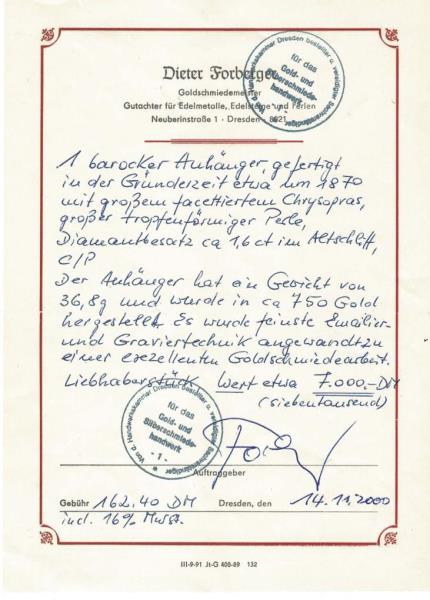 Dieter Forberger
Goldschmiedemeister
Gutachter für Edelmetalle, Edelsteine und Perlen
Neuberinstraße 1 · Dresden · 8021
Von d. Handwerkskammer Dresden bestellter u. vereidigter Sachverständiger
für das
Gold- und
Silberschmiede-
handwerk
- 1 -
1 barocker Anhänger, gefertigt
in der Gründerzeit etwa um 1870
mit großem facettiertem Chrysopras,
großer tropfenförmiger Perle,
Diamantbesatz ca 1,6 ct im Altschliff,
C/P
Der Anhänger hat ein Gewicht von
36,8g und wurde in ca 750 Gold
hergestellt. Es wurde feinste Emailier-
und Graviertechnik angewandt zu
einer exzellenten Goldschmiedearbeit.
Liebhaberstück Wert etwa 7.000,- DM
(siebentausend)
Von d. Handwerkskammer Dresden bestellter u. vereidigter Sachverständiger
für das
Gold- und
Silberschmiede-
handwerk
- 1 -
Auftraggeber
Gebühr 162,40 DM Dresden, den 14.11.2000
incl. 16% Mwst.
III-9-91 Jt-G 408-89 132